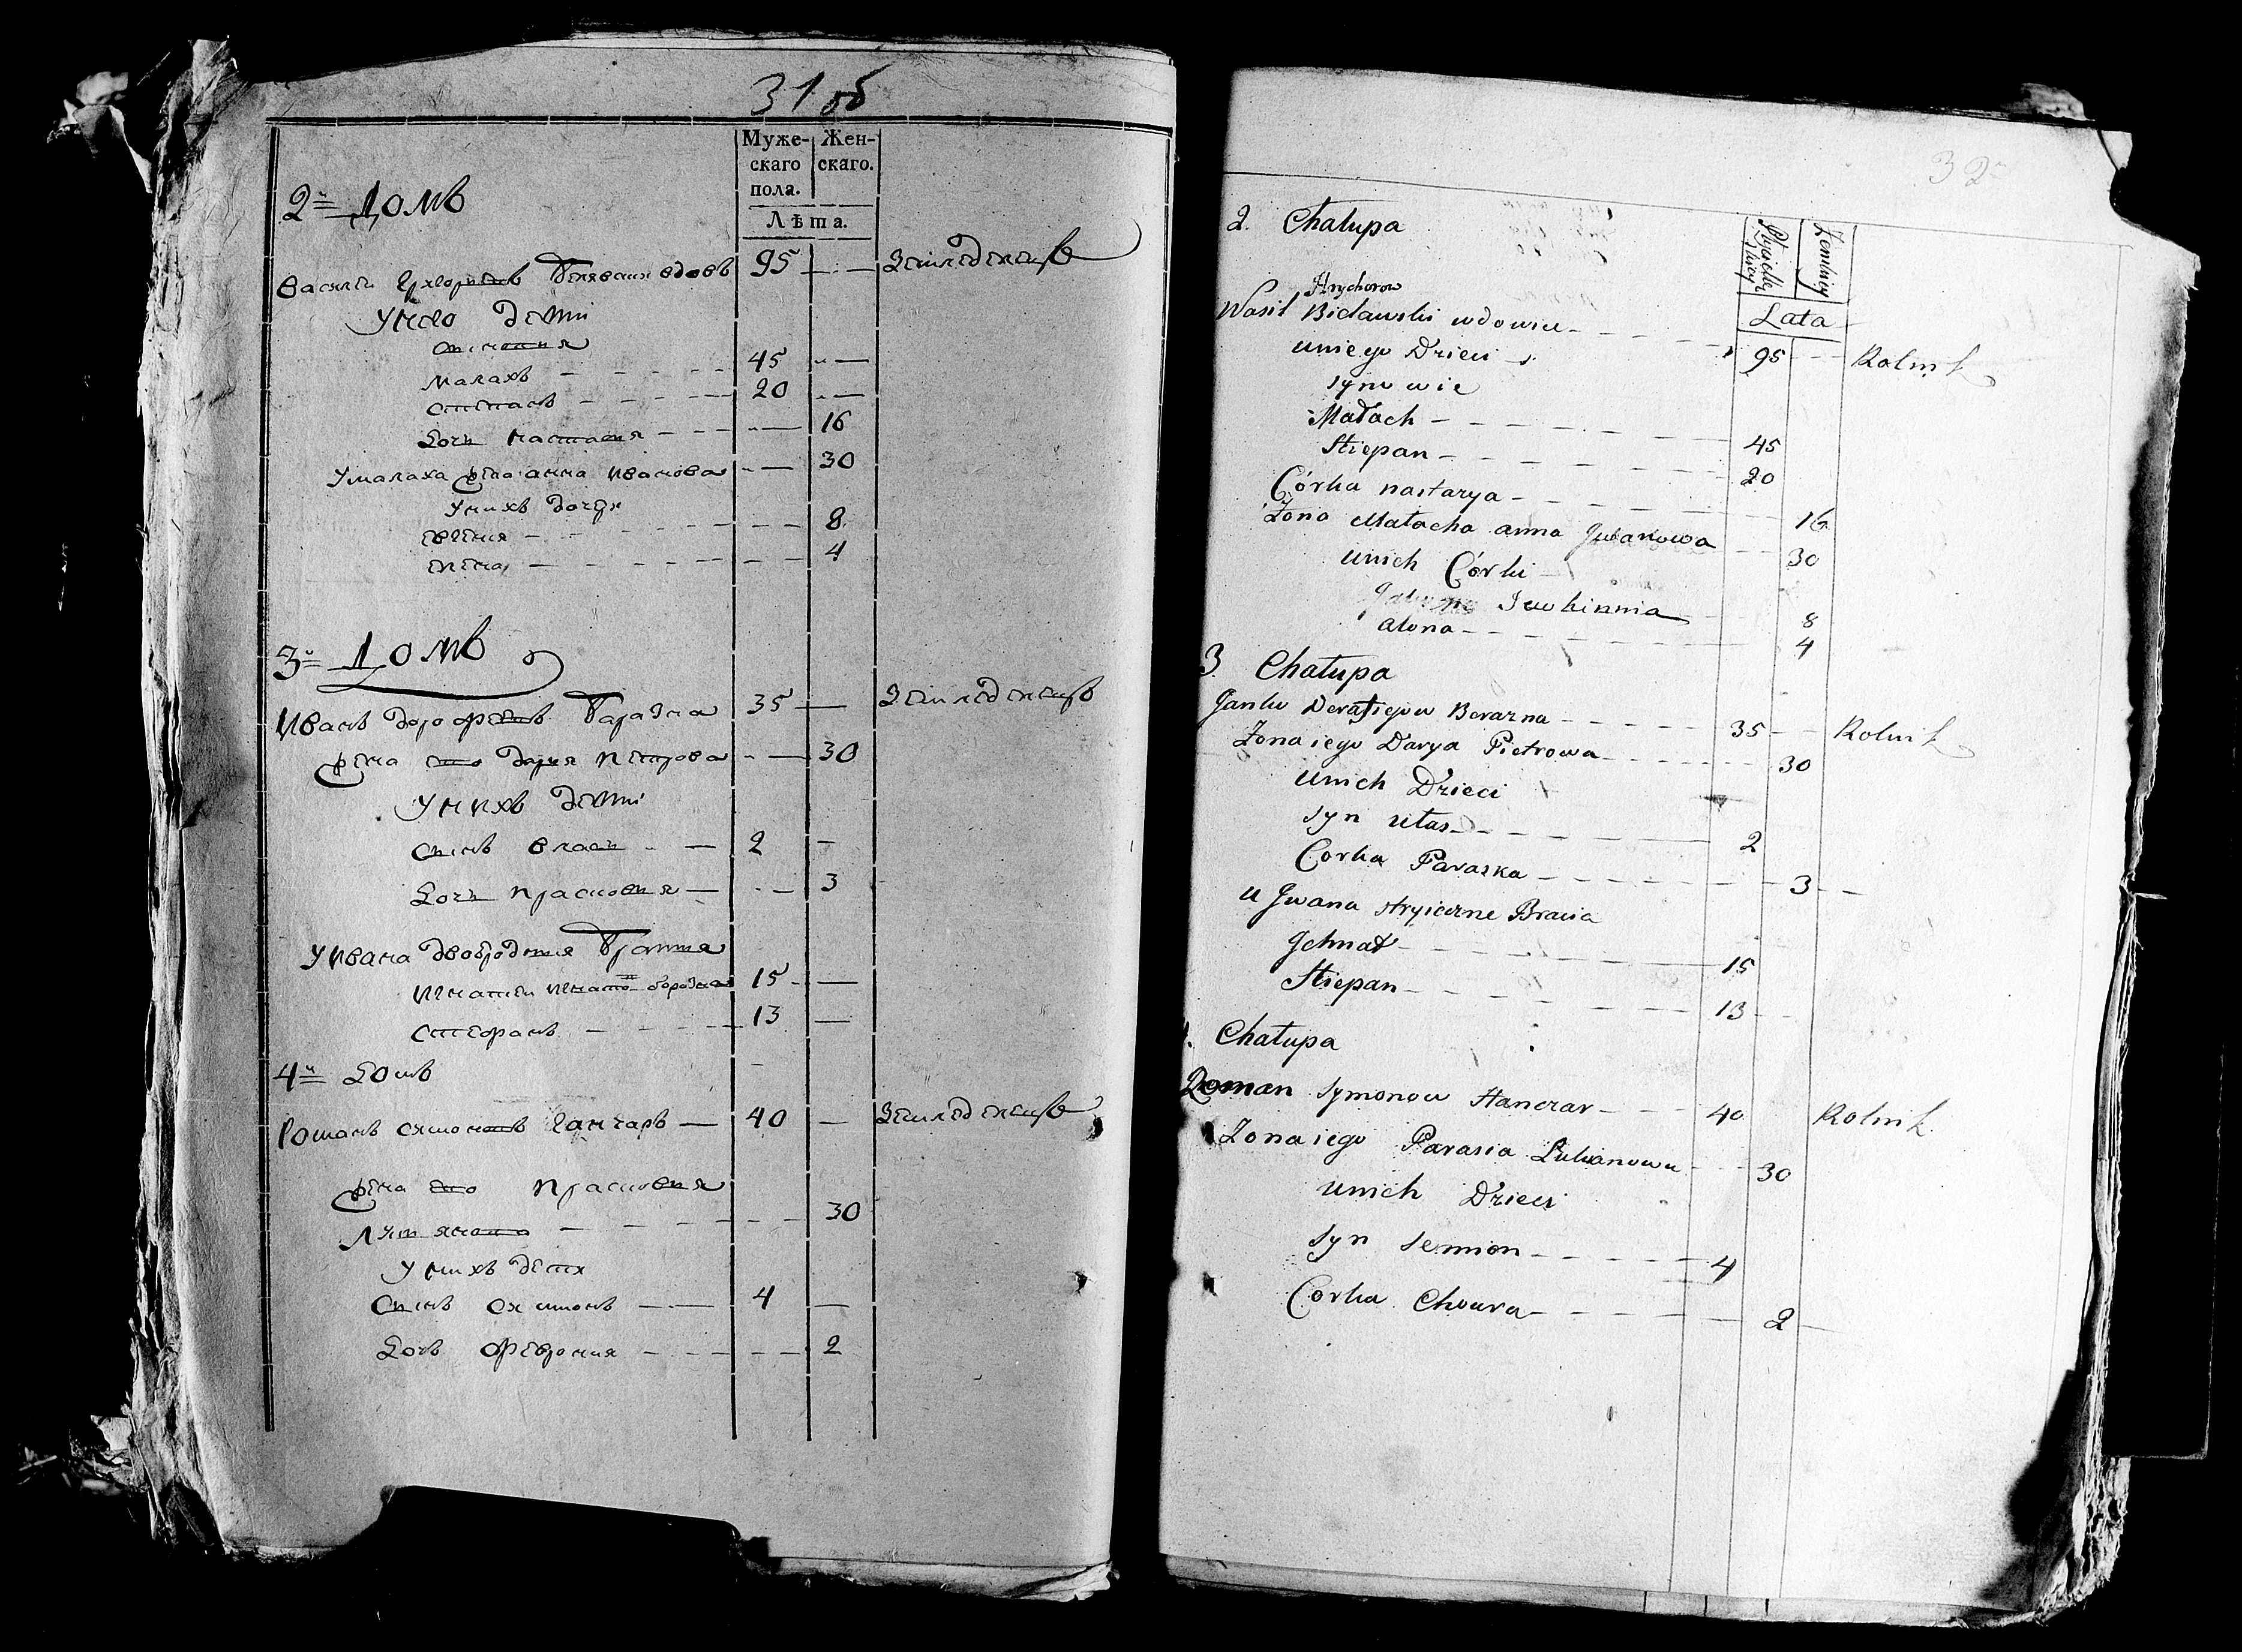 31 об
Муже-
скаго
пола.
Жен-
скаго.
Лѣта.
2й Домъ
Василей Григориевъ Белявский вдовъ 95 —
У него дети
Малахъ 45 —
Степанъ 20 —
Дочь Настасия — 16
У Малаха жена Анна Иванова — 30
У нихъ дочери
Евгения — 8
Елена — 4
3й Домъ
Иванъ Дорофеевъ Баразна 35 —
Жена ево Дария Петрова — 30
У нихъ дети
Сынъ Власъ 2 —
Дочь Прасковия — 3
У Ивана двоюродныя братия
15 —
Степанъ 13 —
4й Домъ
Романъ Сямоновъ Ганчаръ — 40 —
Жена ево Прасковия
30
У нихъ дети
Сынъ Сямионъ 4 —
Дочь Феврония — 2
32
2. Chałupa
Lata
Hrychorow
Wasil Bielawski wdowiec 95 Rolnik
u niego Dzieci
synowie
Małach 45
Stiepan 20
Córka nastazya 16
Żona Małacha anna Jwanowa 30
u nich Córki
Jewhinnia 8
alona 4
3 Chałupa
Janko Borazna 35 Rolnik
Żona iego Darya Pietrowa 30
u nich Dzieci
syn Ułas 2
Corka Paraska 3
u Jwana stryieczne Bracia
Jehnat 15
Stiepan 13
Chałupa
Roman Symonow Hanczar 40 Rolnik
Żona iego Parasia Łukianowa 30
u nich Dzieci
syn semion 4
Corka Chwura 2